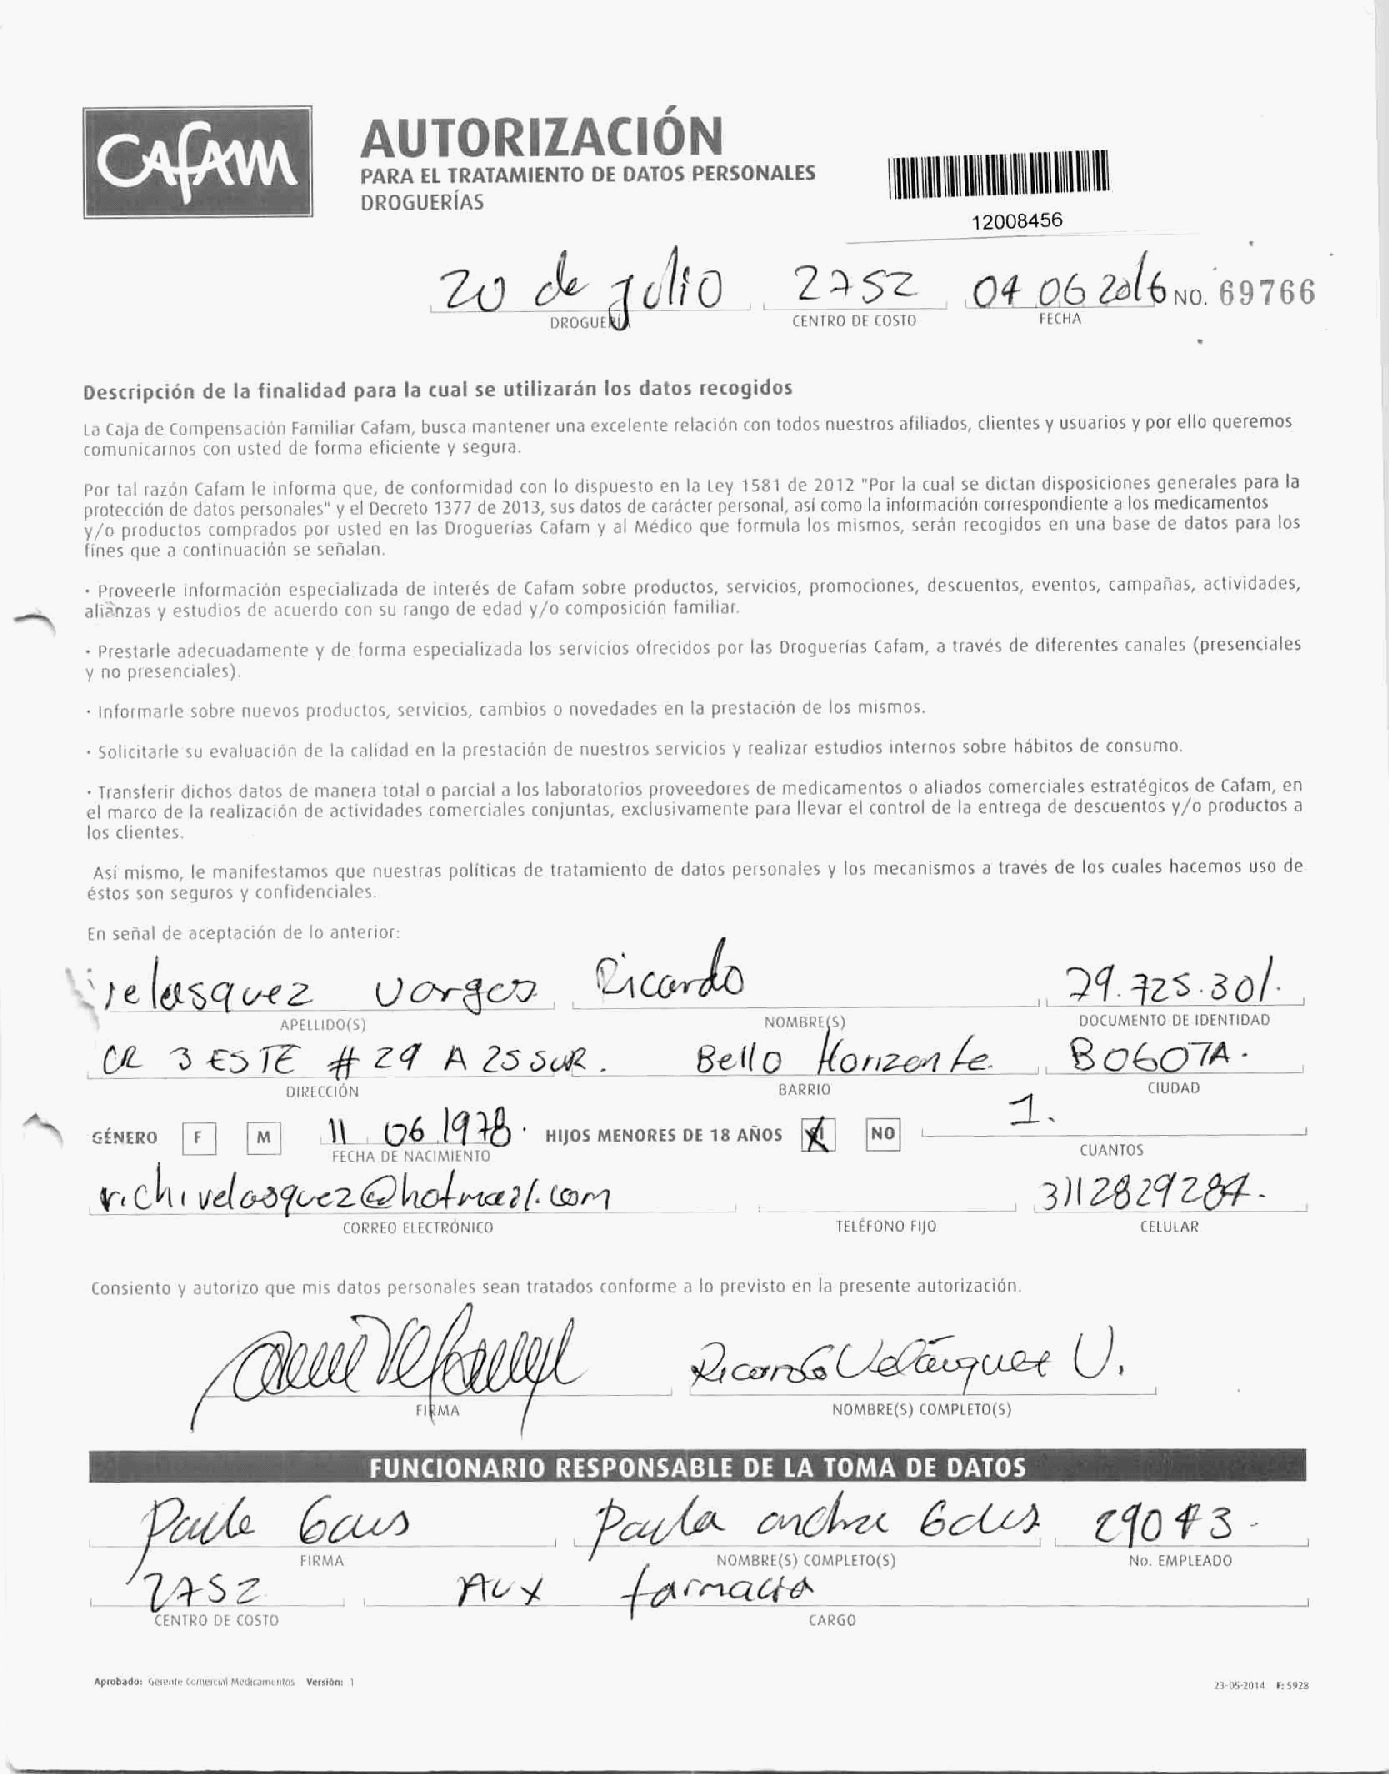 CAFAM
AUTORIZACIÓN
PARA EL TRATAMIENTO DE DATOS PERSONALES
DROGUERÍAS
12008456
20 de julio 2752 04 06 2016 NO. 69766
DROGUERÍA CENTRO DE COSTO FECHA
Descripción de la finalidad para la cual se utilizarán los datos recogidos
La Caja de Compensación Familiar Cafam, busca mantener una excelente relación con todos nuestros afiliados, clientes y usuarios y por ello queremos
comunicarnos con usted de forma eficiente y segura.
Por tal razón Cafam le informa que, de conformidad con lo dispuesto en la Ley 1581 de 2012 "Por la cual se dictan disposiciones generales para la
protección de datos personales" y el Decreto 1377 de 2013, sus datos de carácter personal, así como la información correspondiente a los medicamentos
y/o productos comprados por usted en las Droguerías Cafam y al Médico que formula los mismos, serán recogidos en una base de datos para los
fines que a continuación se señalan.
· Proveerle información especializada de interés de Cafam sobre productos, servicios, promociones, descuentos, eventos, campañas, actividades,
alianzas y estudios de acuerdo con su rango de edad y/o composición familiar.
· Prestarle adecuadamente y de forma especializada los servicios ofrecidos por las Droguerías Cafam, a través de diferentes canales (presenciales
y no presenciales).
· Informarle sobre nuevos productos, servicios, cambios o novedades en la prestación de los mismos.
· Solicitarle su evaluación de la calidad en la prestación de nuestros servicios y realizar estudios internos sobre hábitos de consumo.
· Transferir dichos datos de manera total o parcial a los laboratorios proveedores de medicamentos o aliados comerciales estratégicos de Cafam, en
el marco de la realización de actividades comerciales conjuntas, exclusivamente para llevar el control de la entrega de descuentos y/o productos a
los clientes.
Así mismo, le manifestamos que nuestras políticas de tratamiento de datos personales y los mecanismos a través de los cuales hacemos uso de
éstos son seguros y confidenciales.
En señal de aceptación de lo anterior:
Velasquez Vargas Ricardo 79.725.301.
APELLIDO(S) NOMBRE(S) DOCUMENTO DE IDENTIDAD
CR 3 ESTE # 29 A 25 SUR. Bello Horizonte. BOGOTA.
DIRECCIÓN BARRIO CIUDAD
GÉNERO F M 11 06 1978. HIJOS MENORES DE 18 AÑOS NO 1.
FECHA DE NACIMIENTO CUANTOS
richivelasquez@hotmail.com 3112829284.
CORREO ELECTRÓNICO TELÉFONO FIJO CELULAR
Consiento y autorizo que mis datos personales sean tratados conforme a lo previsto en la presente autorización.
Ricardo Velásquez V.
FIRMA NOMBRE(S) COMPLETO(S)
FUNCIONARIO RESPONSABLE DE LA TOMA DE DATOS
Paula andrea
FIRMA NOMBRE(S) COMPLETO(S) No. EMPLEADO
2752 AUX farmacia
CENTRO DE COSTO CARGO
Aprobado: Gerente Comercial Medicamentos Versión: 1 23-05-2014 F: 5928